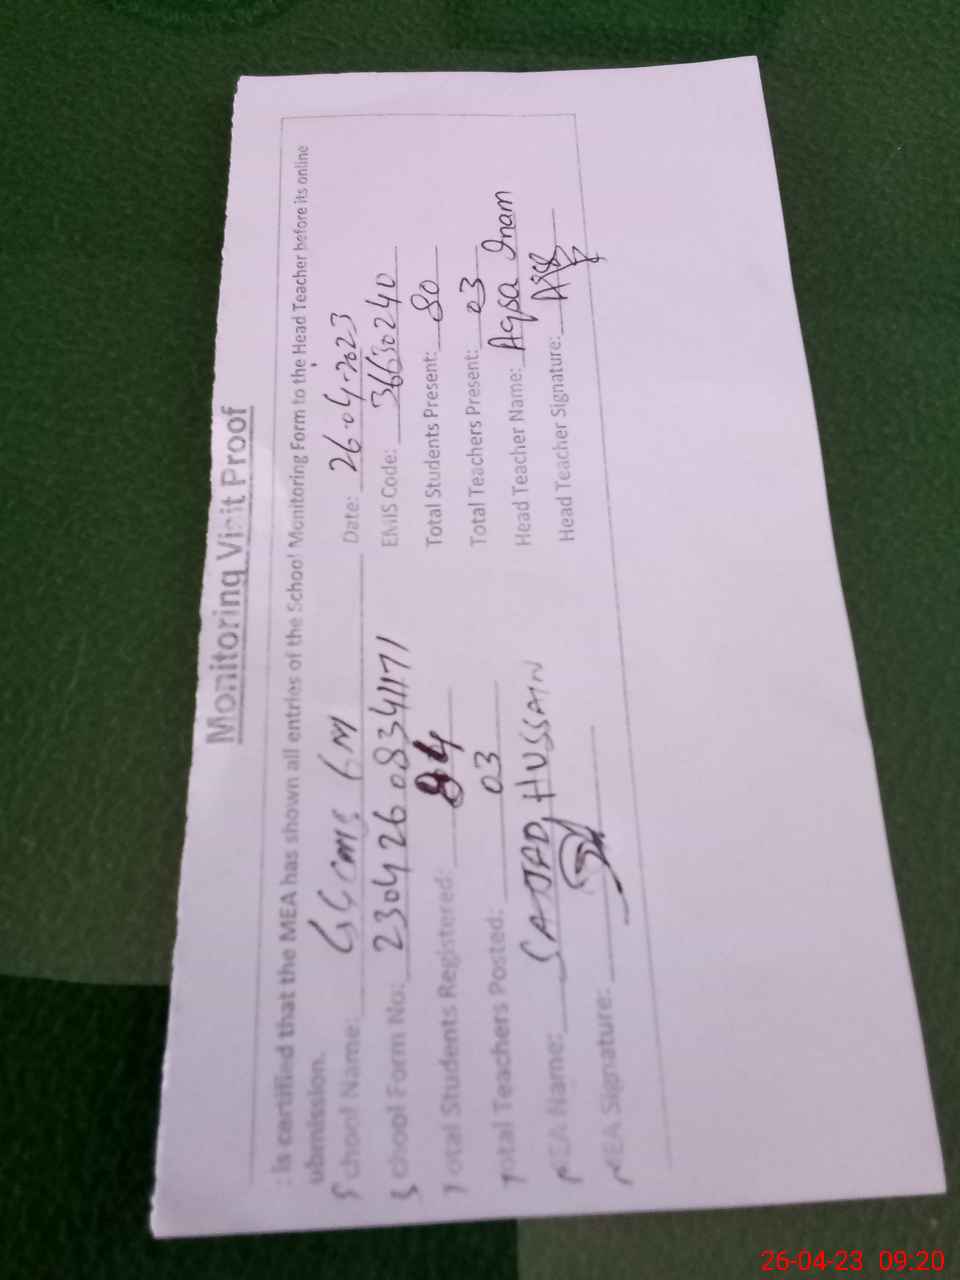 Monitoring Visit Proof
is certified that the MEA has shown all entries of the School Monitoring Form to the Head Teacher before its online
ubmission.
School Name: Date: 26-04-2023
School Form No: 23042608341171 EMIS Code: 36630240
Total Students Registered: 84 Total Students Present: 80
Total Teachers Posted: 03 Total Teachers Present: 03
MEA Name: SAJJAD HUSSAIN Head Teacher Name: Aqsa Inam
MEA Signature: Head Teacher Signature:
26-04-23 09:20